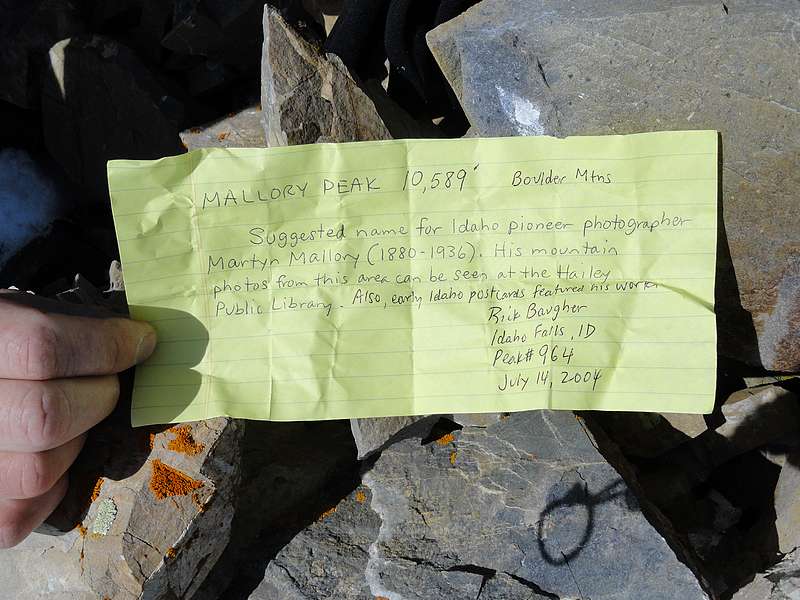 MALLORY PEAK 10,589' Boulder Mtns
Suggested name for Idaho pioneer photographer
Martyn Mallory (1880-1936). His mountain
photos from this area can be seen at the Hailey
Public Library. Also, early Idaho postcards featured his work.
Rick Baugher
Idaho Falls, ID
Peak# 964
July 14, 2004